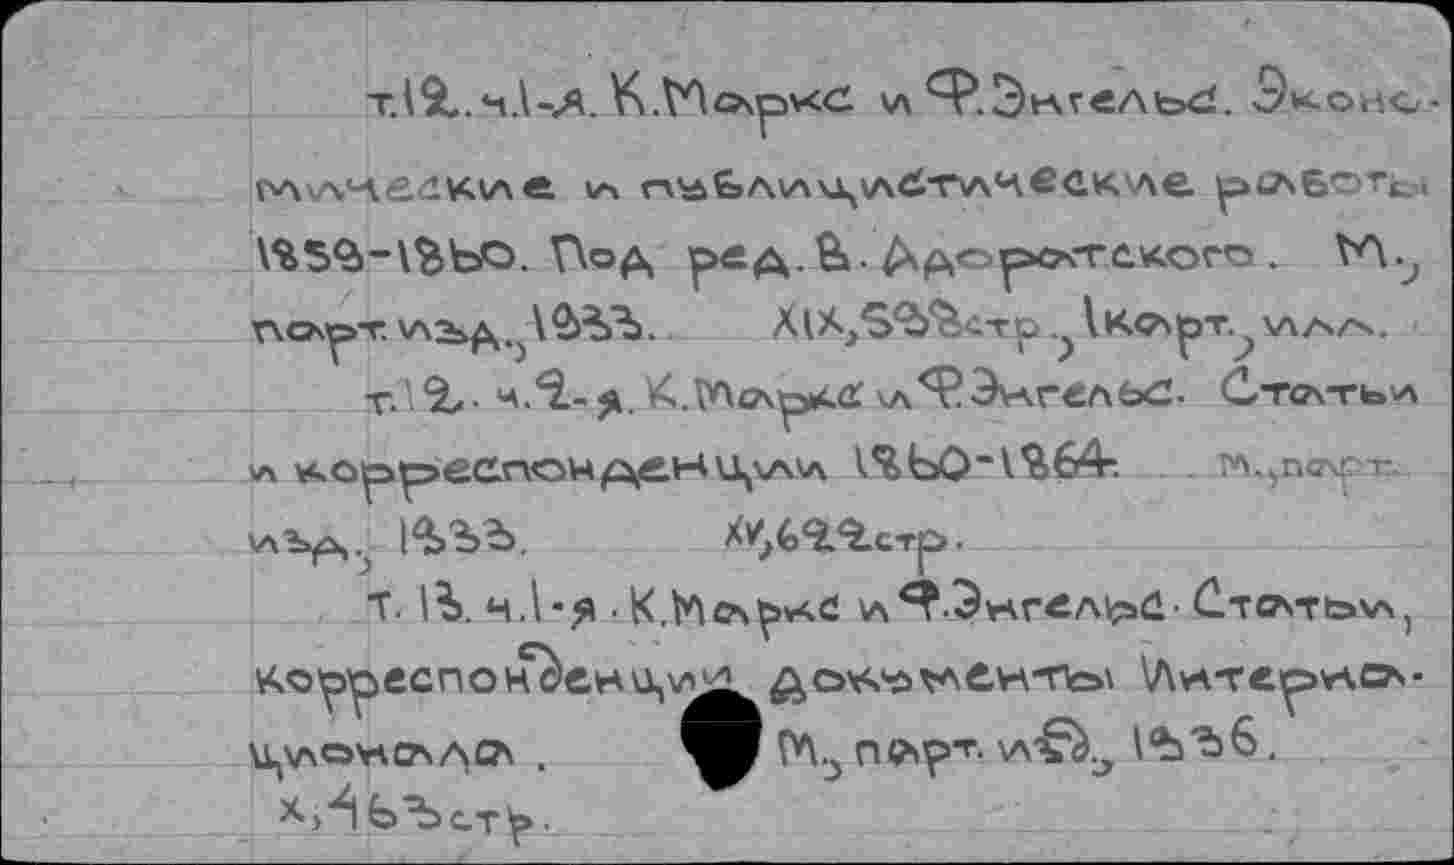 т.12. ч.1-я. К.Маркс и Ф.Энгельс. Эконо-
мические и публицистические работы
1858-1860. Под ред. В. Адоратского. М.,
парт. изд., 1933. XIX, 833стр., 1карт., илл.
т.12. ч.2-я. К.Маркс и Ф.Энгельс. Статьи
и корреспонденции 1860-1864. М., парт.
изд., 1933. XV, 622стр.
т. 13. ч.1-я. К.Маркс и Ф.Энгельс. Статьи,
корреспонденции документы Интерна-
ционала. М., парт. изд., 1936.
X, стр.